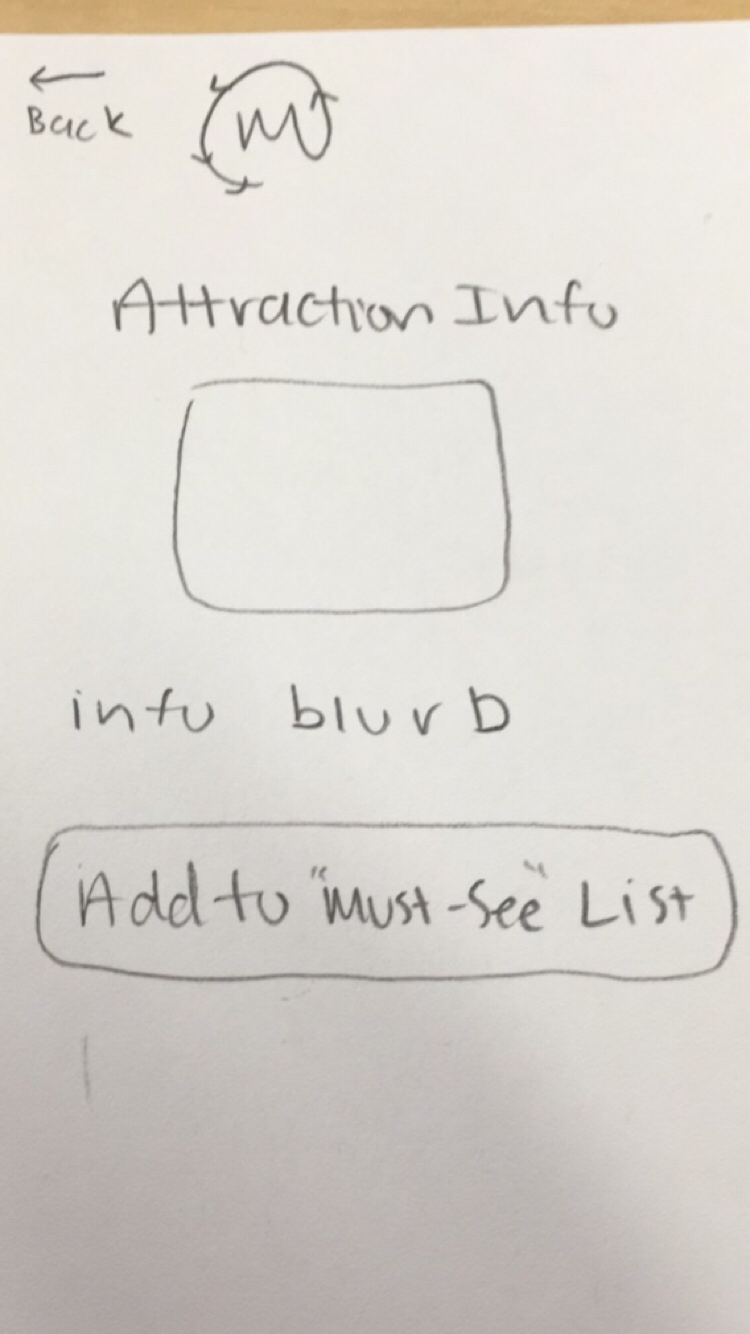 Back
m
Attraction Info
info blurb
Add to "Must-See" List